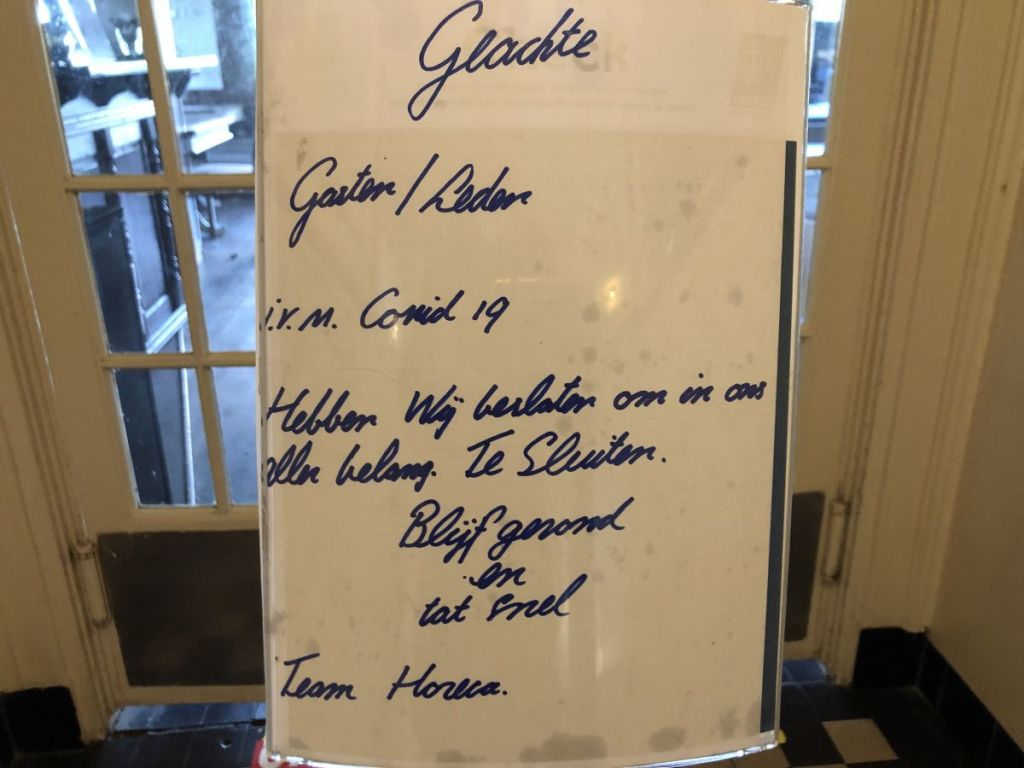 Geachte
Gasten / Leden
i.v.m. Covid 19
Hebben Wij besloten om in ons
aller belang. Te Sluiten.
Blijf gezond
en
tot snel
Team Horeca.